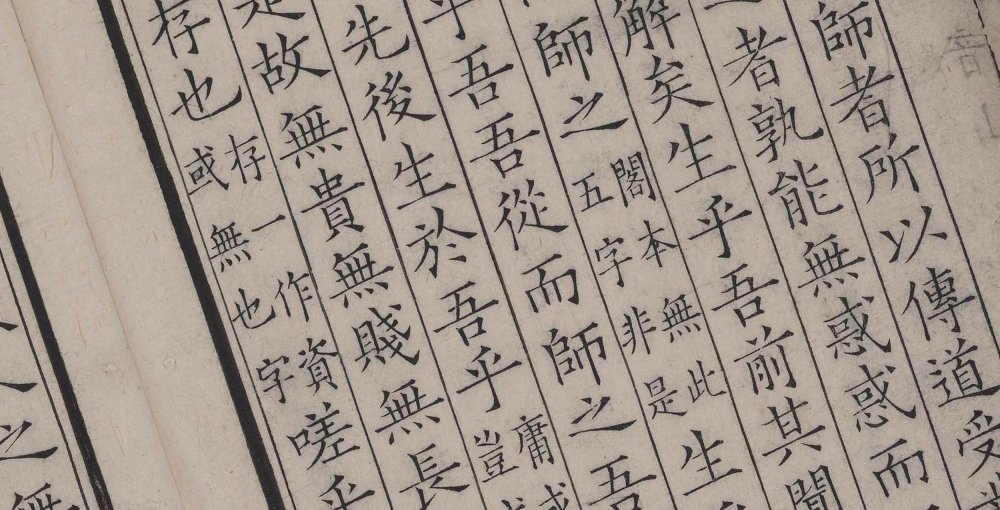 師者所以傳道受
者孰能無惑惑而
解矣生乎吾前其聞
師之閣本無此五字非是生
乎吾吾從而師之吾
先後生於吾乎庸或豈
是故無貴無賤無長
存也存一作資或無也字嗟乎
之無